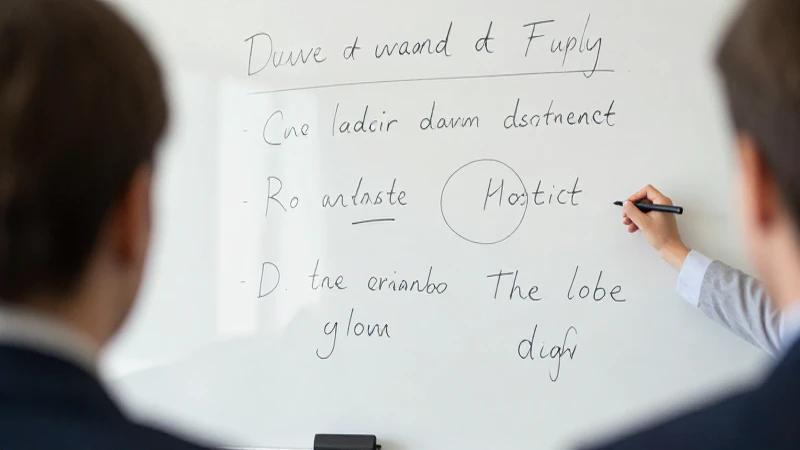 Duwe d waand d Fuply
- Cne ladcir davm dsotnenct
- Ro antnste Hostict
- D. tne erianbo The lobe
ylom digfr